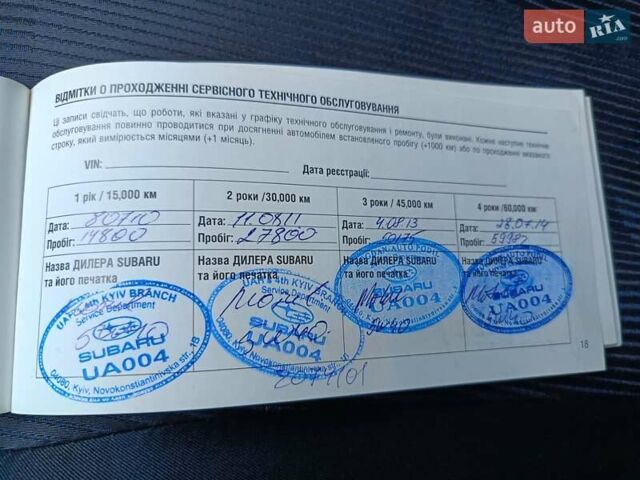 auto RIA.com
ВІДМІТКИ О ПРОХОДЖЕННІ СЕРВІСНОГО ТЕХНІЧНОГО ОБСЛУГОВУВАННЯ
Ці записи свідчать, що роботи, які вказані у графіку технічного обслуговування і ремонту, були виконані. Кожне наступне технічне
обслуговування повинно проводитися при досягненні автомобілем встановленого пробігу (+1000 км) або по проходженні вказаного
строку, який вимірюється місяцями (+1 місяць).
VIN:
Дата реєстрації:
1 рік / 15,000 км
2 роки /30,000 км
3 роки / 45,000 км
4 роки /60,000 км
Дата:
Дата: 11.08.11
Дата: 4.08.13
Дата: 28.07.14
Пробіг: 14800
Пробіг: 27800
Пробіг:
Пробіг: 59987
Назва ДИЛЕРА SUBARU
та його печатка
Назва ДИЛЕРА SUBARU
та його печатка
Назва ДИЛЕРА SUBARU
та його печатка
Назва ДИЛЕРА SUBARU
та його печатка
4th KYIV BRANCH
Service Department
SUBARU
UA004
04080, Kyiv, Novokonstiantinivska str., 18
4th KYIV BRANCH
Service Department
SUBARU
UA004
04080, Kyiv, Novokonstiantinivska str.
SUBARU
UA004
SUBARU
UA004
18